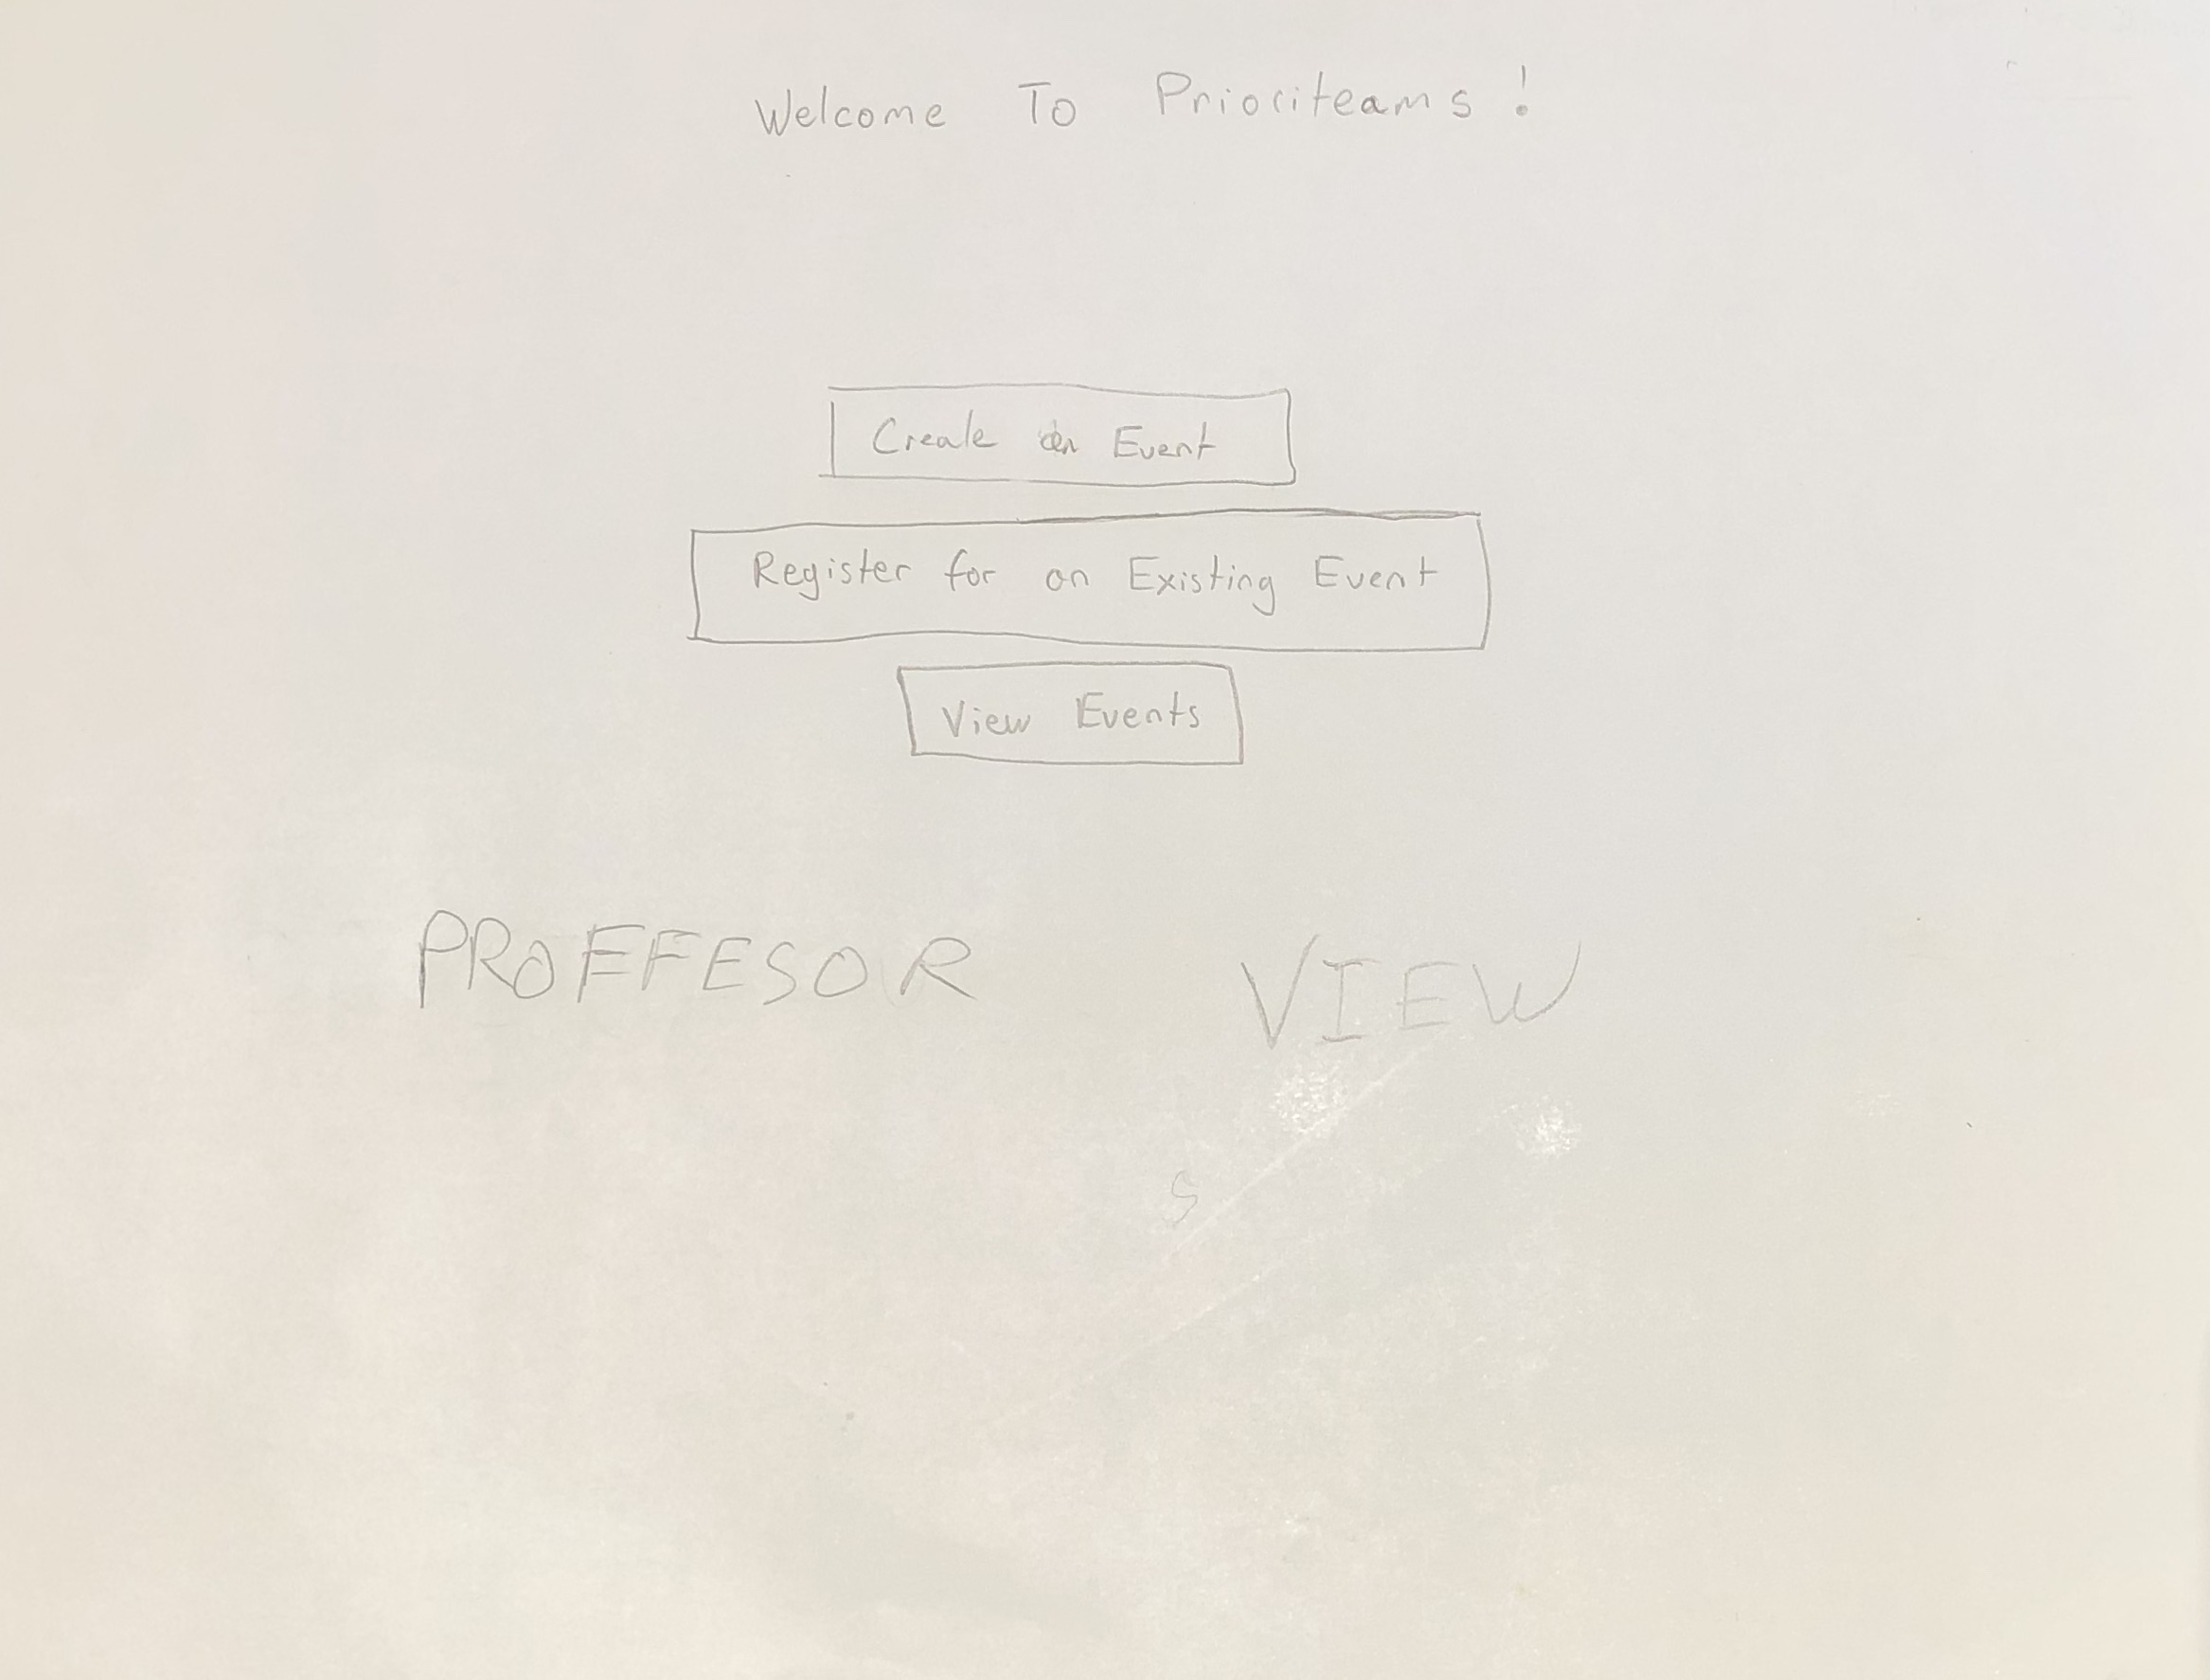 Welcome To Prioriteams!
Create an Event
Register for an Existing Event
View Events
PROFFESOR VIEW
S